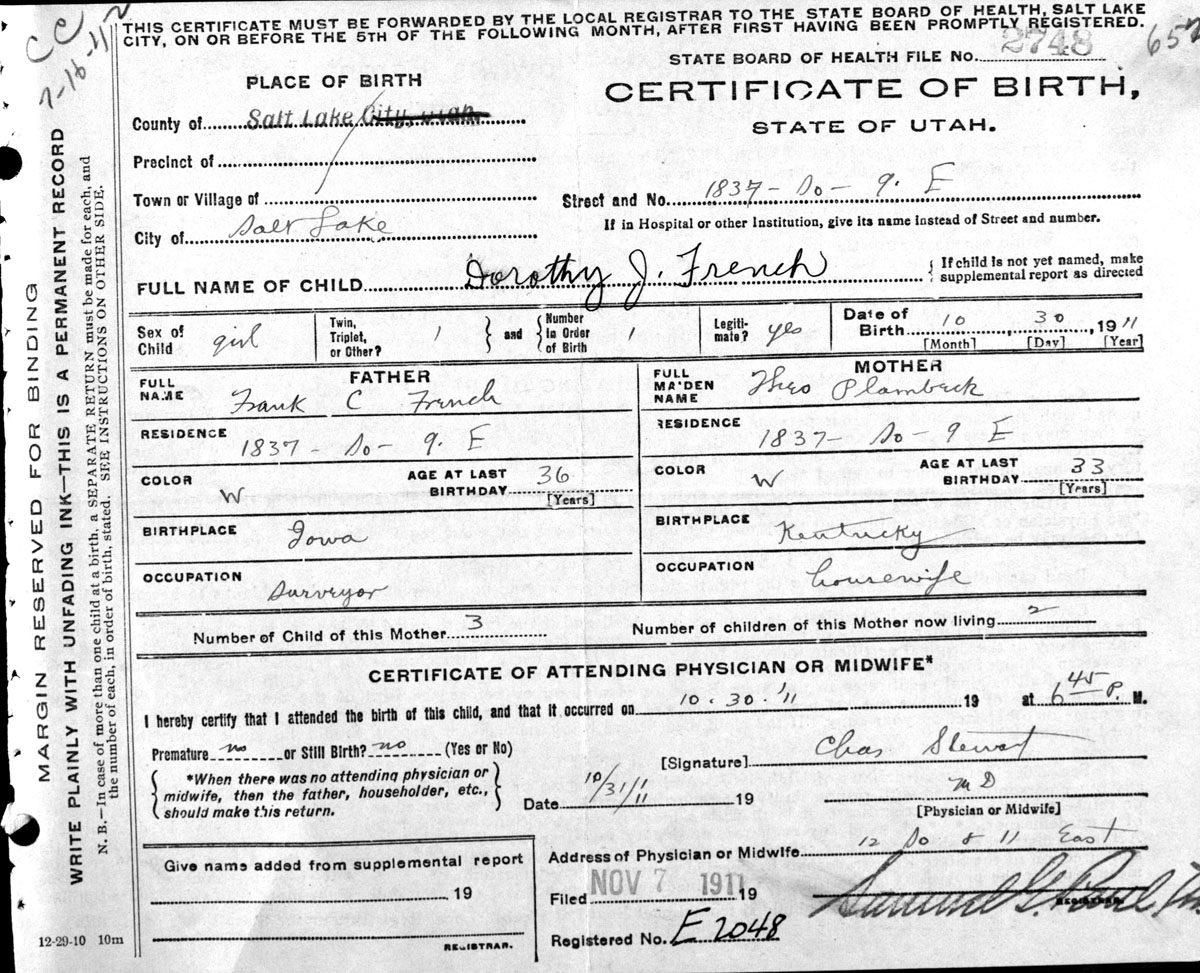 THIS CERTIFICATE MUST BE FORWARDED BY THE LOCAL REGISTRAR TO THE STATE BOARD OF HEALTH, SALT LAKE
CITY, ON OR BEFORE THE 5TH OF THE FOLLOWING MONTH, AFTER FIRST HAVING BEEN PROMPTLY REGISTERED.
CC
7-16-
STATE BOARD OF HEALTH FILE No. 2748
PLACE OF BIRTH
CERTIFICATE OF BIRTH,
STATE OF UTAH.
County of Salt Lake City, Utah
Precinct of
Town or Village of
Street and No. 1837 - So - 9. E
If in Hospital or other Institution, give its name instead of Street and number.
City of Salt Lake
FULL NAME OF CHILD Dorothy J. French
If child is not yet named, make
supplemental report as directed
Sex of Child girl
Twin, Triplet, or Other? 1 and Number in Order of Birth 1
Legiti-mate? yes
Date of Birth 10, 30, 1911
[Month] [Day] [Year]
FATHER
FULL NAME Frank C French
RESIDENCE 1837 - So - 9. E
COLOR W
AGE AT LAST BIRTHDAY 36 [Years]
BIRTHPLACE Iowa
OCCUPATION Surveyor
MOTHER
FULL MAIDEN NAME Theo Plambeck
RESIDENCE 1837 - So - 9 E
COLOR W
AGE AT LAST BIRTHDAY 33 [Years]
BIRTHPLACE Kentucky
OCCUPATION housewife
Number of Child of this Mother 3
Number of children of this Mother now living 2
CERTIFICATE OF ATTENDING PHYSICIAN OR MIDWIFE*
I hereby certify that I attended the birth of this child, and that it occurred on 10.30.'11 19 at 6 45 P. M.
Premature no or Still Birth? no (Yes or No)
*When there was no attending physician or
midwife, then the father, householder, etc.,
should make this return.
[Signature] Chas Stewart
M D
[Physician or Midwife]
Date 10/31/11 19
Address of Physician or Midwife 12 So & 11 East
Give name added from supplemental report
19
REGISTRAR.
Filed NOV 7 1911, 19
REGISTRAR.
Registered No. E 2048
12-29-10 10m
MARGIN RESERVED FOR BINDING
WRITE PLAINLY WITH UNFADING INK—THIS IS A PERMANENT RECORD
N. B.—In case of more than one child at a birth, a SEPARATE RETURN must be made for each, and
the number of each, in order of birth, stated. SEE INSTRUCTIONS ON OTHER SIDE.